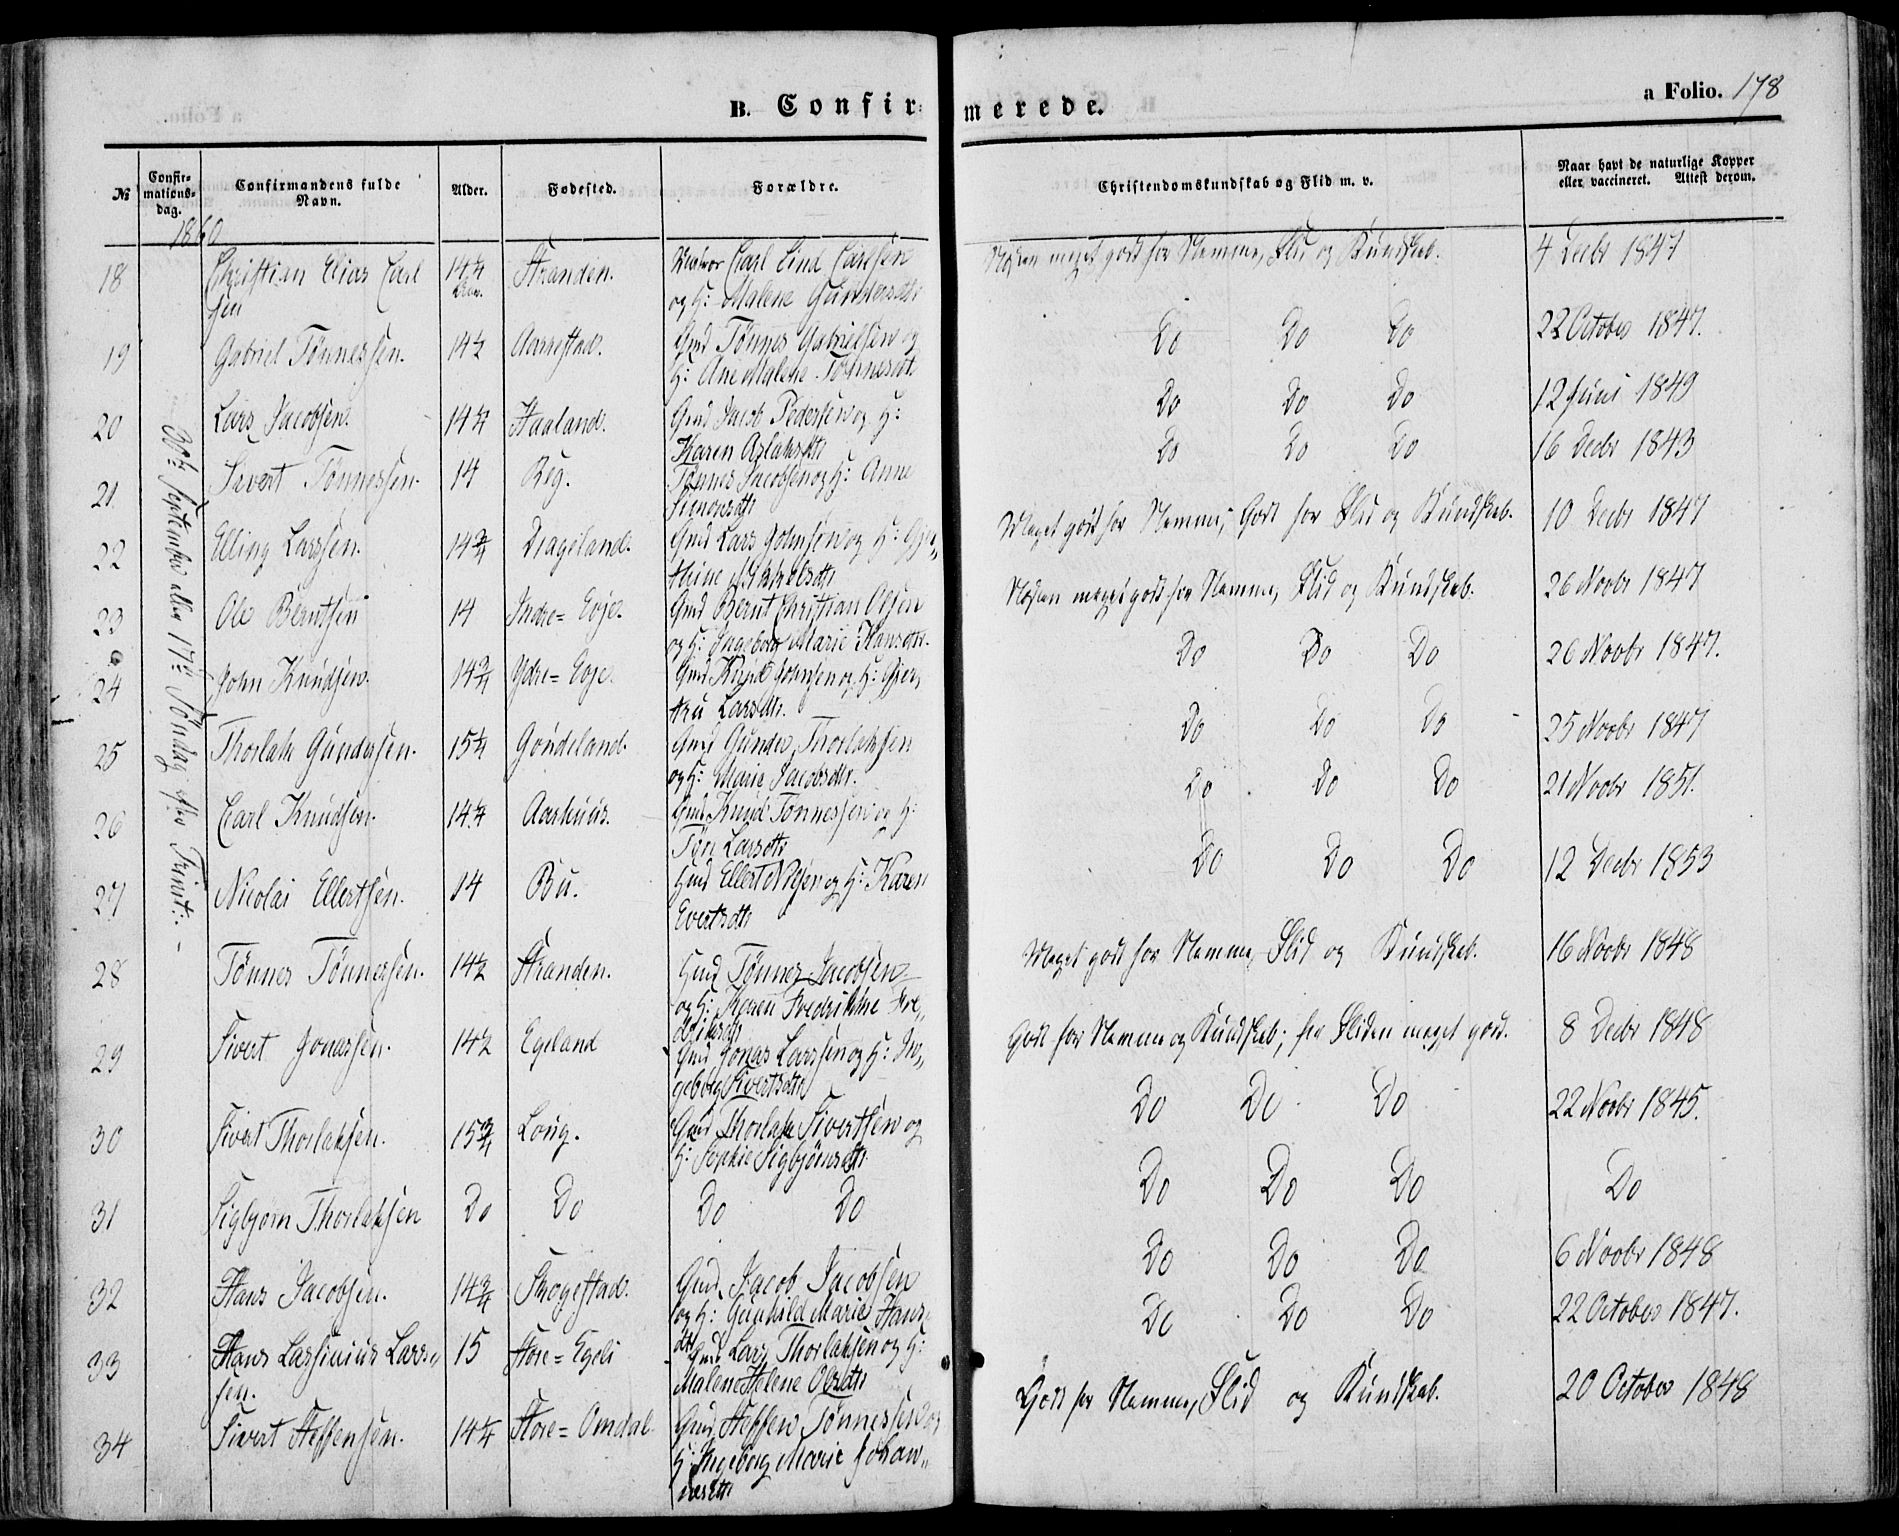 B. Confir-
merede.
a Folio. 178
№
Confir-
mations-
dag.
Confirmandens fulde
Navn.
Alder.
Fødested.
Forældre.
Christendomskundskab og Flid m. v.
Naar havt de naturlige Kopper
eller vaccineret. Attest derom.
1860
30te September eller 17de Søndag efter Trinit:
18 Christian Elias Carl
sen
14¼ Stranden. Carl Lind Carlsen
og H: Malene Gundersdtr
Næsten meget godt for Nemme, Flid og Kundskab. 4 Decbr 1847
19 Gabriel Tønnessen. 14½ Aarrestad. Gmd Tønnes Gabrielsen og
H: Ane Malene Tønnesdtr
Do Do Do 22 October 1847.
20 Lars Jacobsen. 14¼ Haaland. Gmd Jacob Pedersen og H:
Karen Aslaksdtr
Do Do Do 12 Juni 1849
21. Sivert Tønnessen. 14 Reg. Tønnes Jacobsen og H: Anne
Simonsdtr
Do Do Do 16 Decbr 1843
22 Elling Larssen. 14¾ Drageland. Gmd Lars Johnsen og H: Gjer„
thine Mikkelsdtr
Meget godt for Nemme; Godt for Flid og Kundskab. 10 Decbr 1847
23 Ole Berntsen 14 Indre=Eeje. Gmd Bernt Christian Olsen
og H: Ingeborg Marie Hansdtr.
Næsten meget godt for Nemme, Flid og Kundskab. 26 Novbr 1847
24 John Knudsen. 14¾ Ydre=Eeje. Gmd Knud Johnsen og H: Gjer„
tru Larsdtr.
Do Do Do 26 Novbr 1847.
25 Thorlak Gundersen. 15¼ Gondeland. Gmd Gunder Thorlaksen
og H: Marie Jacobsdtr.
Do Do Do 25 Novbr 1847
26 Carl Knudsen. 14¼ Aarhuus. Gmd Knud Tønnessen og H:
Tori Larsdtr
Do Do Do 21 Novbr 1851.
27 Nicolai Ellertsen. 14 Bu. Gmd Ellert Nilsen og H: Karen
Evertsdtr
Do Do Do 12 Decbr 1853
28 Tønnes Tønnessen. 14½ Stranden. Gmd Tønnes Jacobsen
og H: Karen Fredrikke Fre„
driksdtr
Meget godt for Nemme, Flid og Kundskab. 16 Novbr 1848
29 Sivert Jonassen. 14½ Egeland Gmd Jonas Larssen og H: In„
geborg Sivertsdtr
Godt for Nemme og Kundskab; for Fliden meget godt. 8 Decbr 1848
30 Sivert Thorlaksen. 15¾ Loug. Gmd Thorlak Sivertsen og
H: Sophie Sigbjørnsdtr
Do Do Do 22 Novbr 1845.
31 Sigbjørn Thorlaksen Do Do Do Do
Do Do Do Do
32 Hans Jacobsen. 14¾ Skogestad. Gmd. Jacob Jacobsen
og H: Gunhild Marie Hans„
dtr
Do Do Do 6 Novbr 1848
33 Hans Lassinius Lars„
sen.
15 Store=Egeli Gmd Lars Thorlaksen og H:
Malene Helene Olsdtr
Do Do Do 22 October 1847.
34 Sivert Steffensen. 14¼ Store=Omdal Gmd. Steffen Tønnessen og
H: Ingeborg Marie Johan„
nesdtr
Godt for Nemme, Flid og Kundskab. 20 October 1848